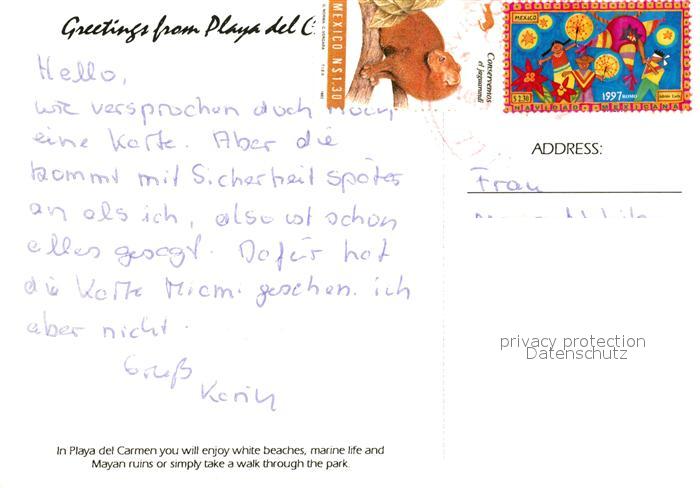 Greetings from Playa del C
MEXICO N$1.30
Conservemos
el jaguarundi
MEXICO
$2.30
1997
NAVIDAD MEXICANA
Hello,
wie versprochen doch noch
eine Karte. Aber die
kommt mit Sicherheit später
an als ich, also ist schon
alles gesagt. Dafür hat
die Karte Miami gesehen. ich
aber nicht.
Gruß
Karin
ADDRESS:
Frau
privacy protection
Datenschutz
In Playa del Carmen you will enjoy white beaches, marine life and
Mayan ruins or simply take a walk through the park.